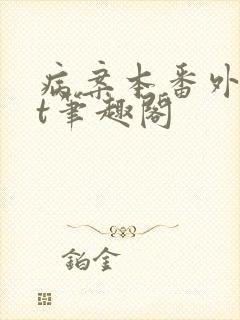 病案本番外
t笔趣阁
铂金